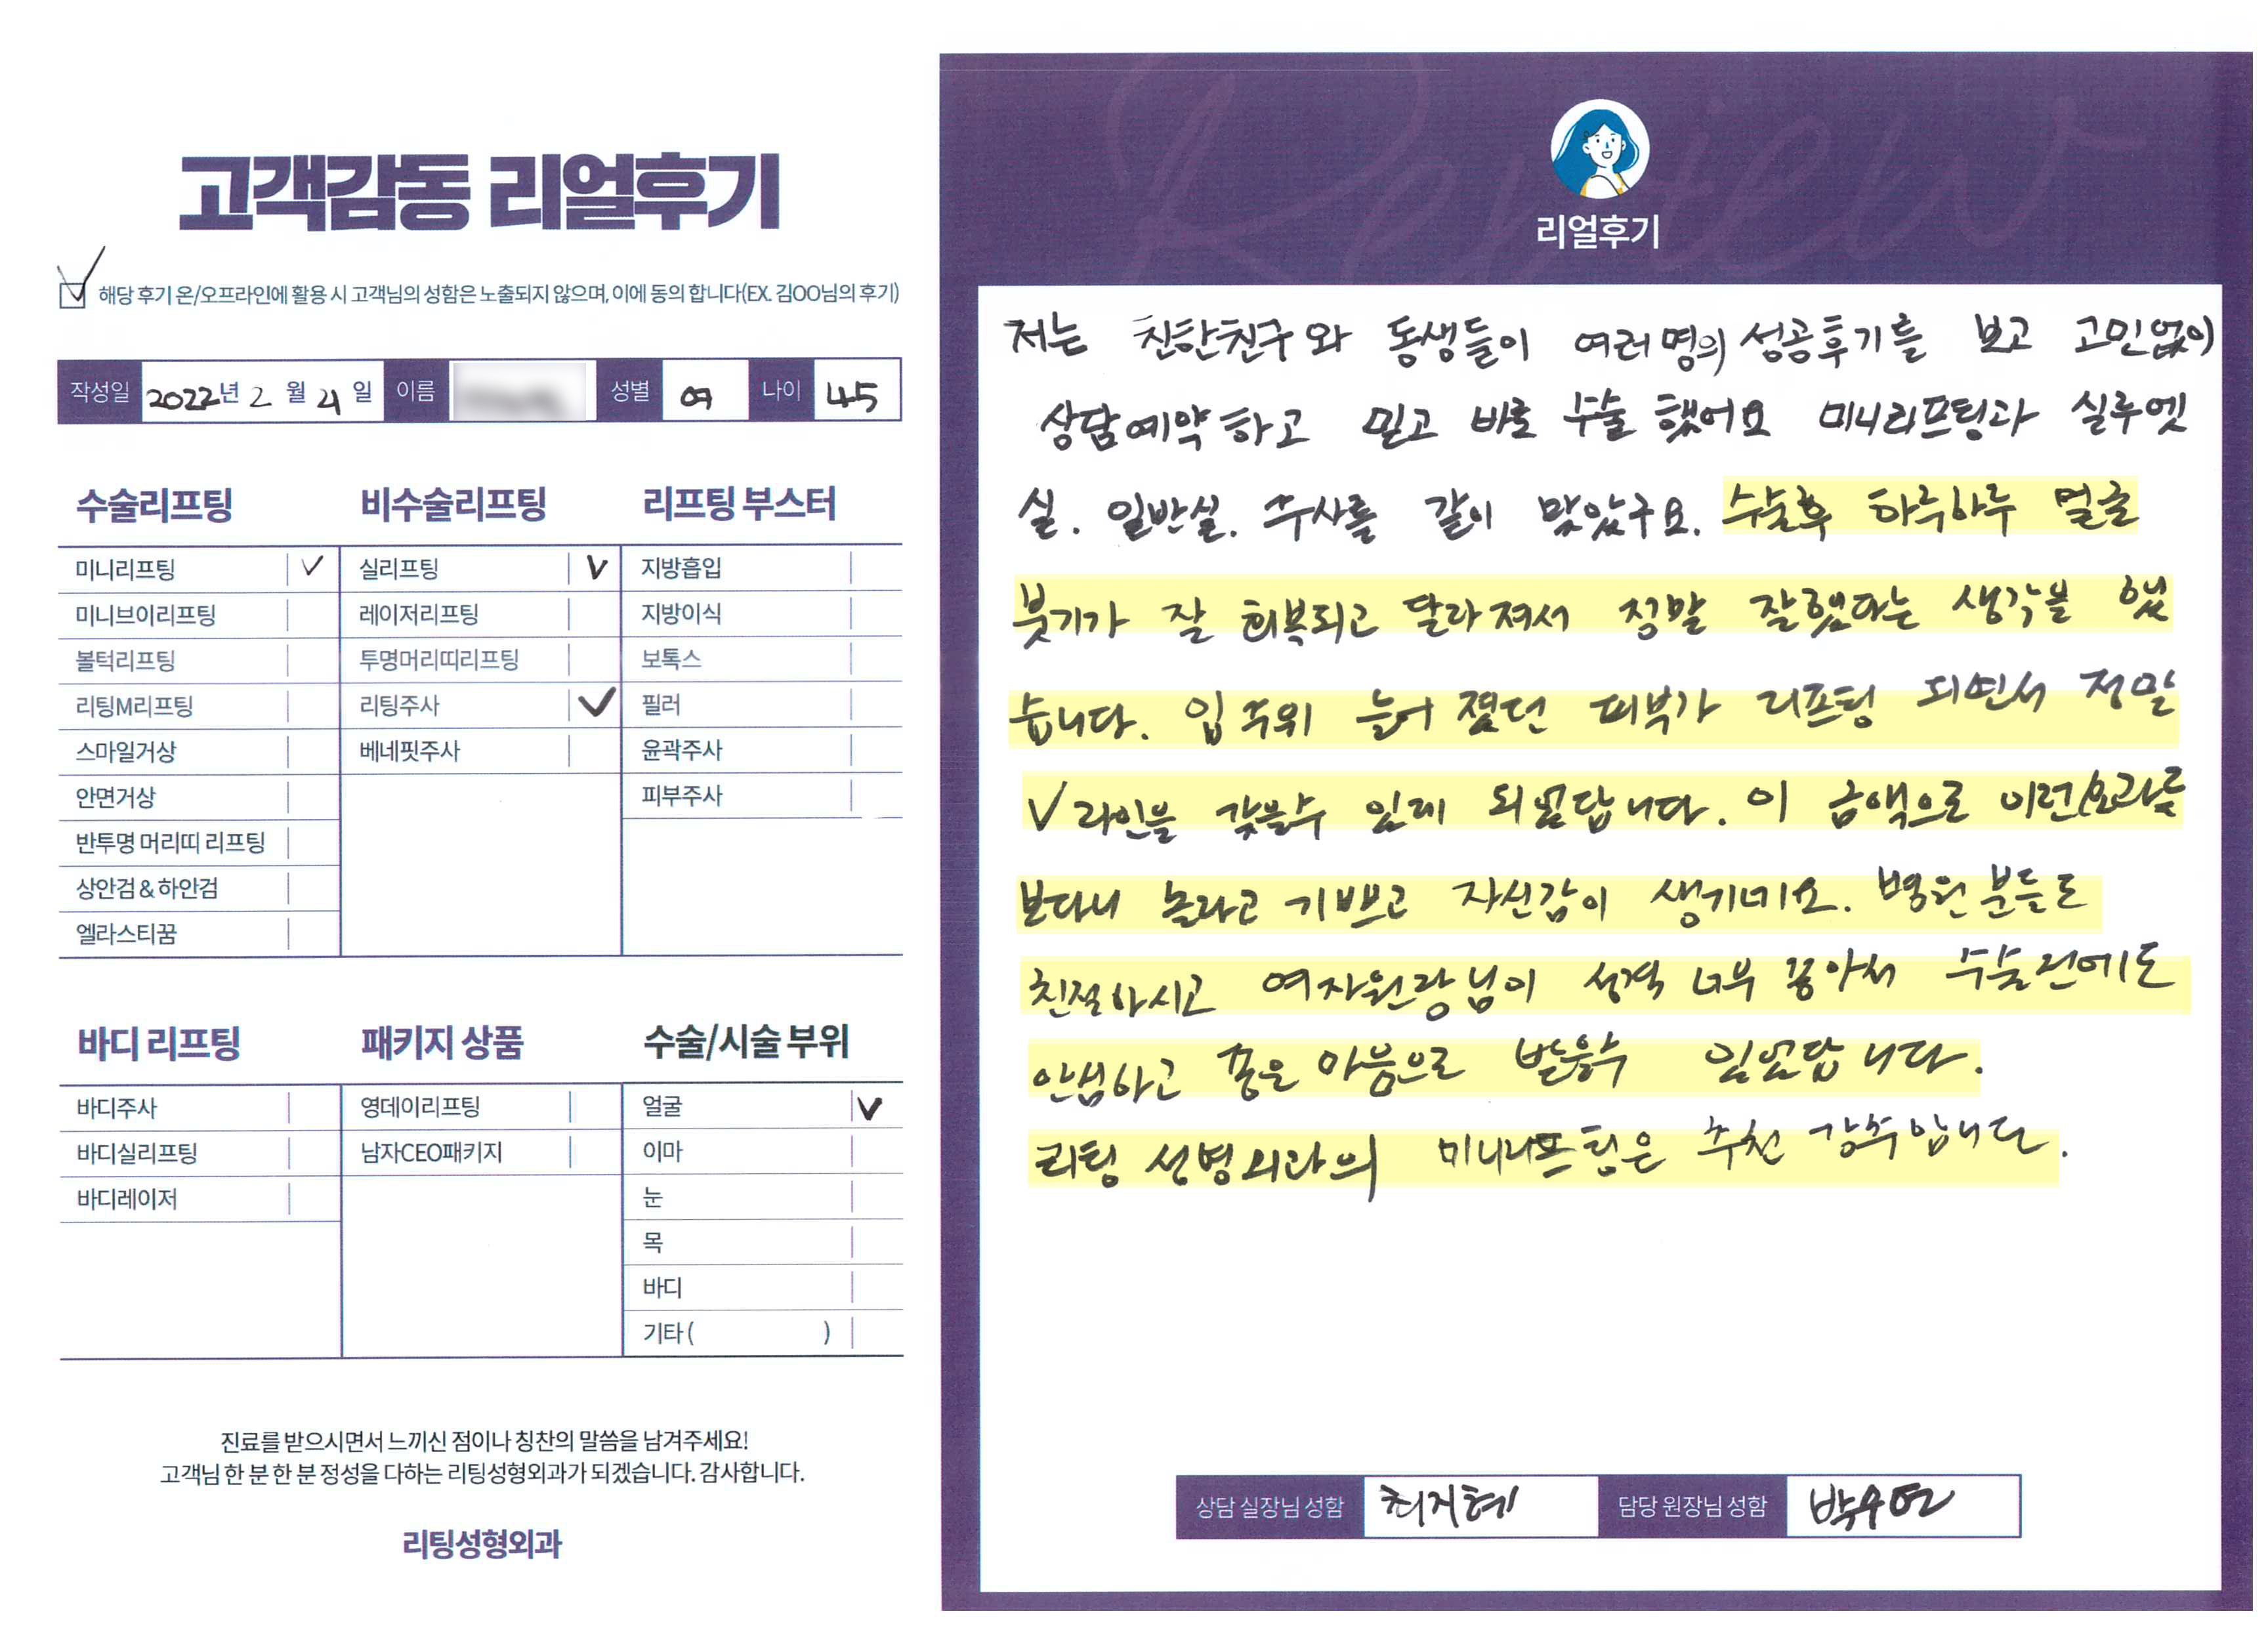 고객감동 리얼후기
해당 후기 온/오프라인에 활용 시 고객님의 성함은 노출되지 않으며, 이에 동의 합니다(EX. 김OO님의 후기)
작성일 2022년 2 월 21 일 이름 성별 여 나이 45
수술리프팅
미니리프팅 ✓
미니브이리프팅
볼턱리프팅
리팅M리프팅
스마일거상
안면거상
반투명 머리띠 리프팅
상안검 & 하안검
엘라스티꿈
비수술리프팅
실리프팅 V
레이저리프팅
투명머리띠리프팅
리팅주사 ✓
베네핏주사
리프팅 부스터
지방흡입
지방이식
보톡스
필러
윤곽주사
피부주사
바디 리프팅
바디주사
바디실리프팅
바디레이저
패키지 상품
영데이리프팅
남자CEO패키지
수술/시술 부위
얼굴 V
이마
눈
목
바디
기타 ( )
진료를 받으시면서 느끼신 점이나 칭찬의 말씀을 남겨주세요!
고객님 한 분 한 분 정성을 다하는 리팅성형외과가 되겠습니다. 감사합니다.
리팅성형외과
Review
리얼후기
저는 친한친구와 동생들이 여러명의 성공후기를 보고 고민없이
상담예약하고 믿고 바로 수술 했어요 미니리프팅과 실루엣
실. 일반실. 주사를 같이 맞았구요. 수술후 하루하루 멀굴
붓기가 잘 회복되고 달라져서 정말 잘했다는 생각을 했
습니다. 입 주위 늘어 졌던 피부가 리프팅 되면서 정말
V라인을 갖을수 있게 되었답니다. 이 금액으로 이런효과를
보다니 놀라고 기쁘고 자신감이 생기네요. 병원분들도
친절하시고 여자원장님이 성격 너무 좋아서 수술전에도
안심하고 좋은 마음으로 받을수 있었답니다.
리팅 성형외과의 미니리프팅은 추천 강추입니다.
상담 실장님 성함 최지혜 담당 원장님 성함